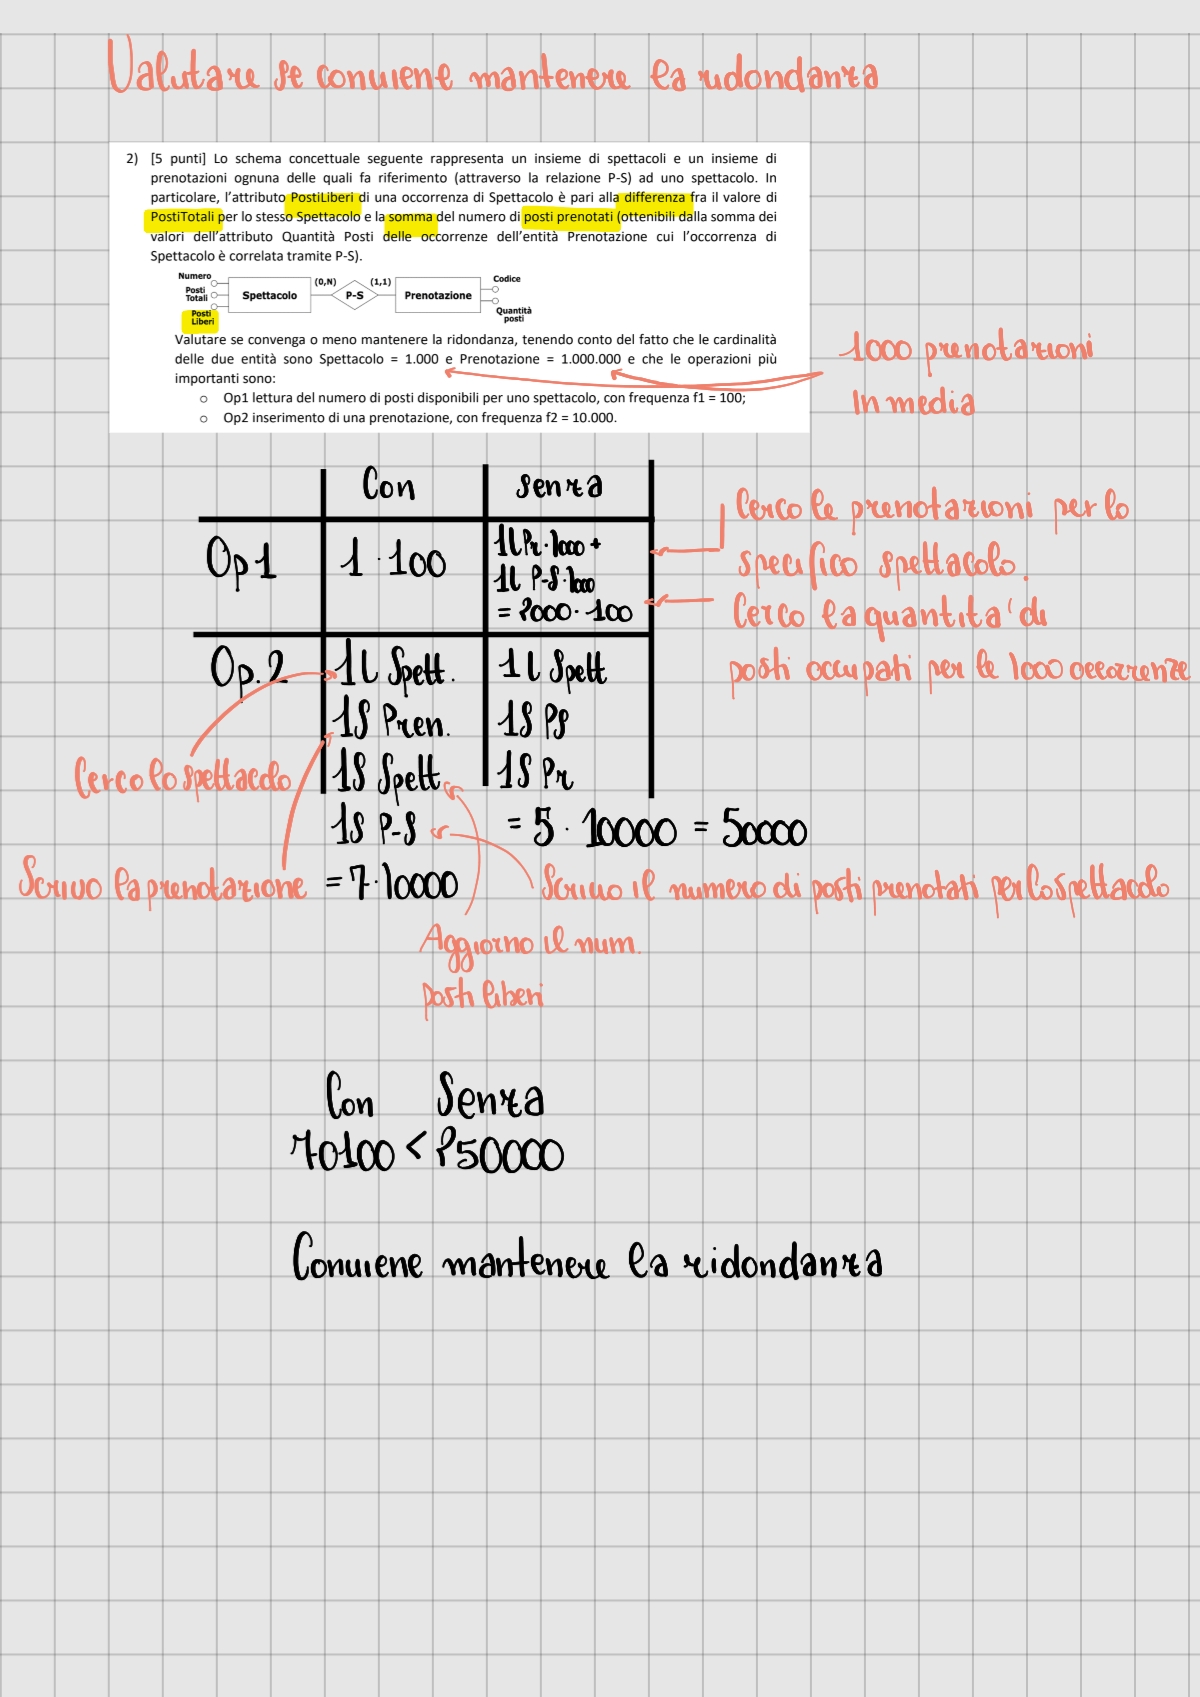 Valutare se conviene mantenere la ridondanza
2) [5 punti] Lo schema concettuale seguente rappresenta un insieme di spettacoli e un insieme di
prenotazioni ognuna delle quali fa riferimento (attraverso la relazione P-S) ad uno spettacolo. In
particolare, l'attributo PostiLiberi di una occorrenza di Spettacolo è pari alla differenza fra il valore di
PostiTotali per lo stesso Spettacolo e la somma del numero di posti prenotati (ottenibili dalla somma dei
valori dell'attributo Quantità Posti delle occorrenze dell'entità Prenotazione cui l'occorrenza di
Spettacolo è correlata tramite P-S).
Numero
Posti
Totali
Posti
Liberi
Spettacolo
(0,N)
P-S
(1,1)
Prenotazione
Codice
Quantità
posti
Valutare se convenga o meno mantenere la ridondanza, tenendo conto del fatto che le cardinalità
delle due entità sono Spettacolo = 1.000 e Prenotazione = 1.000.000 e che le operazioni più
importanti sono:
o Op1 lettura del numero di posti disponibili per uno spettacolo, con frequenza f1 = 100;
o Op2 inserimento di una prenotazione, con frequenza f2 = 10.000.
1000 prenotazioni
In media
Con
senza
Op1
1 · 100
1L Pr · 1000 +
1L P-S · 1000
= 2000 · 100
Cerco le prenotazioni per lo
specifico spettacolo.
Cerco la quantita' di
posti occupati per le 1000 occorrenze
Op.2
1L Spett.
1S Pren.
1S Spett
1S P-S
= 7 · 10000
1L Spett
1S PS
1S Pr
= 5 · 10000 = 50000
Cerco lo spettacolo
Scrivo la prenotazione
Scrivo il numero di posti prenotati per lo spettacolo
Aggiorno il num.
posti liberi
Con Senza
70100 < 250000
Conviene mantenere la ridondanza